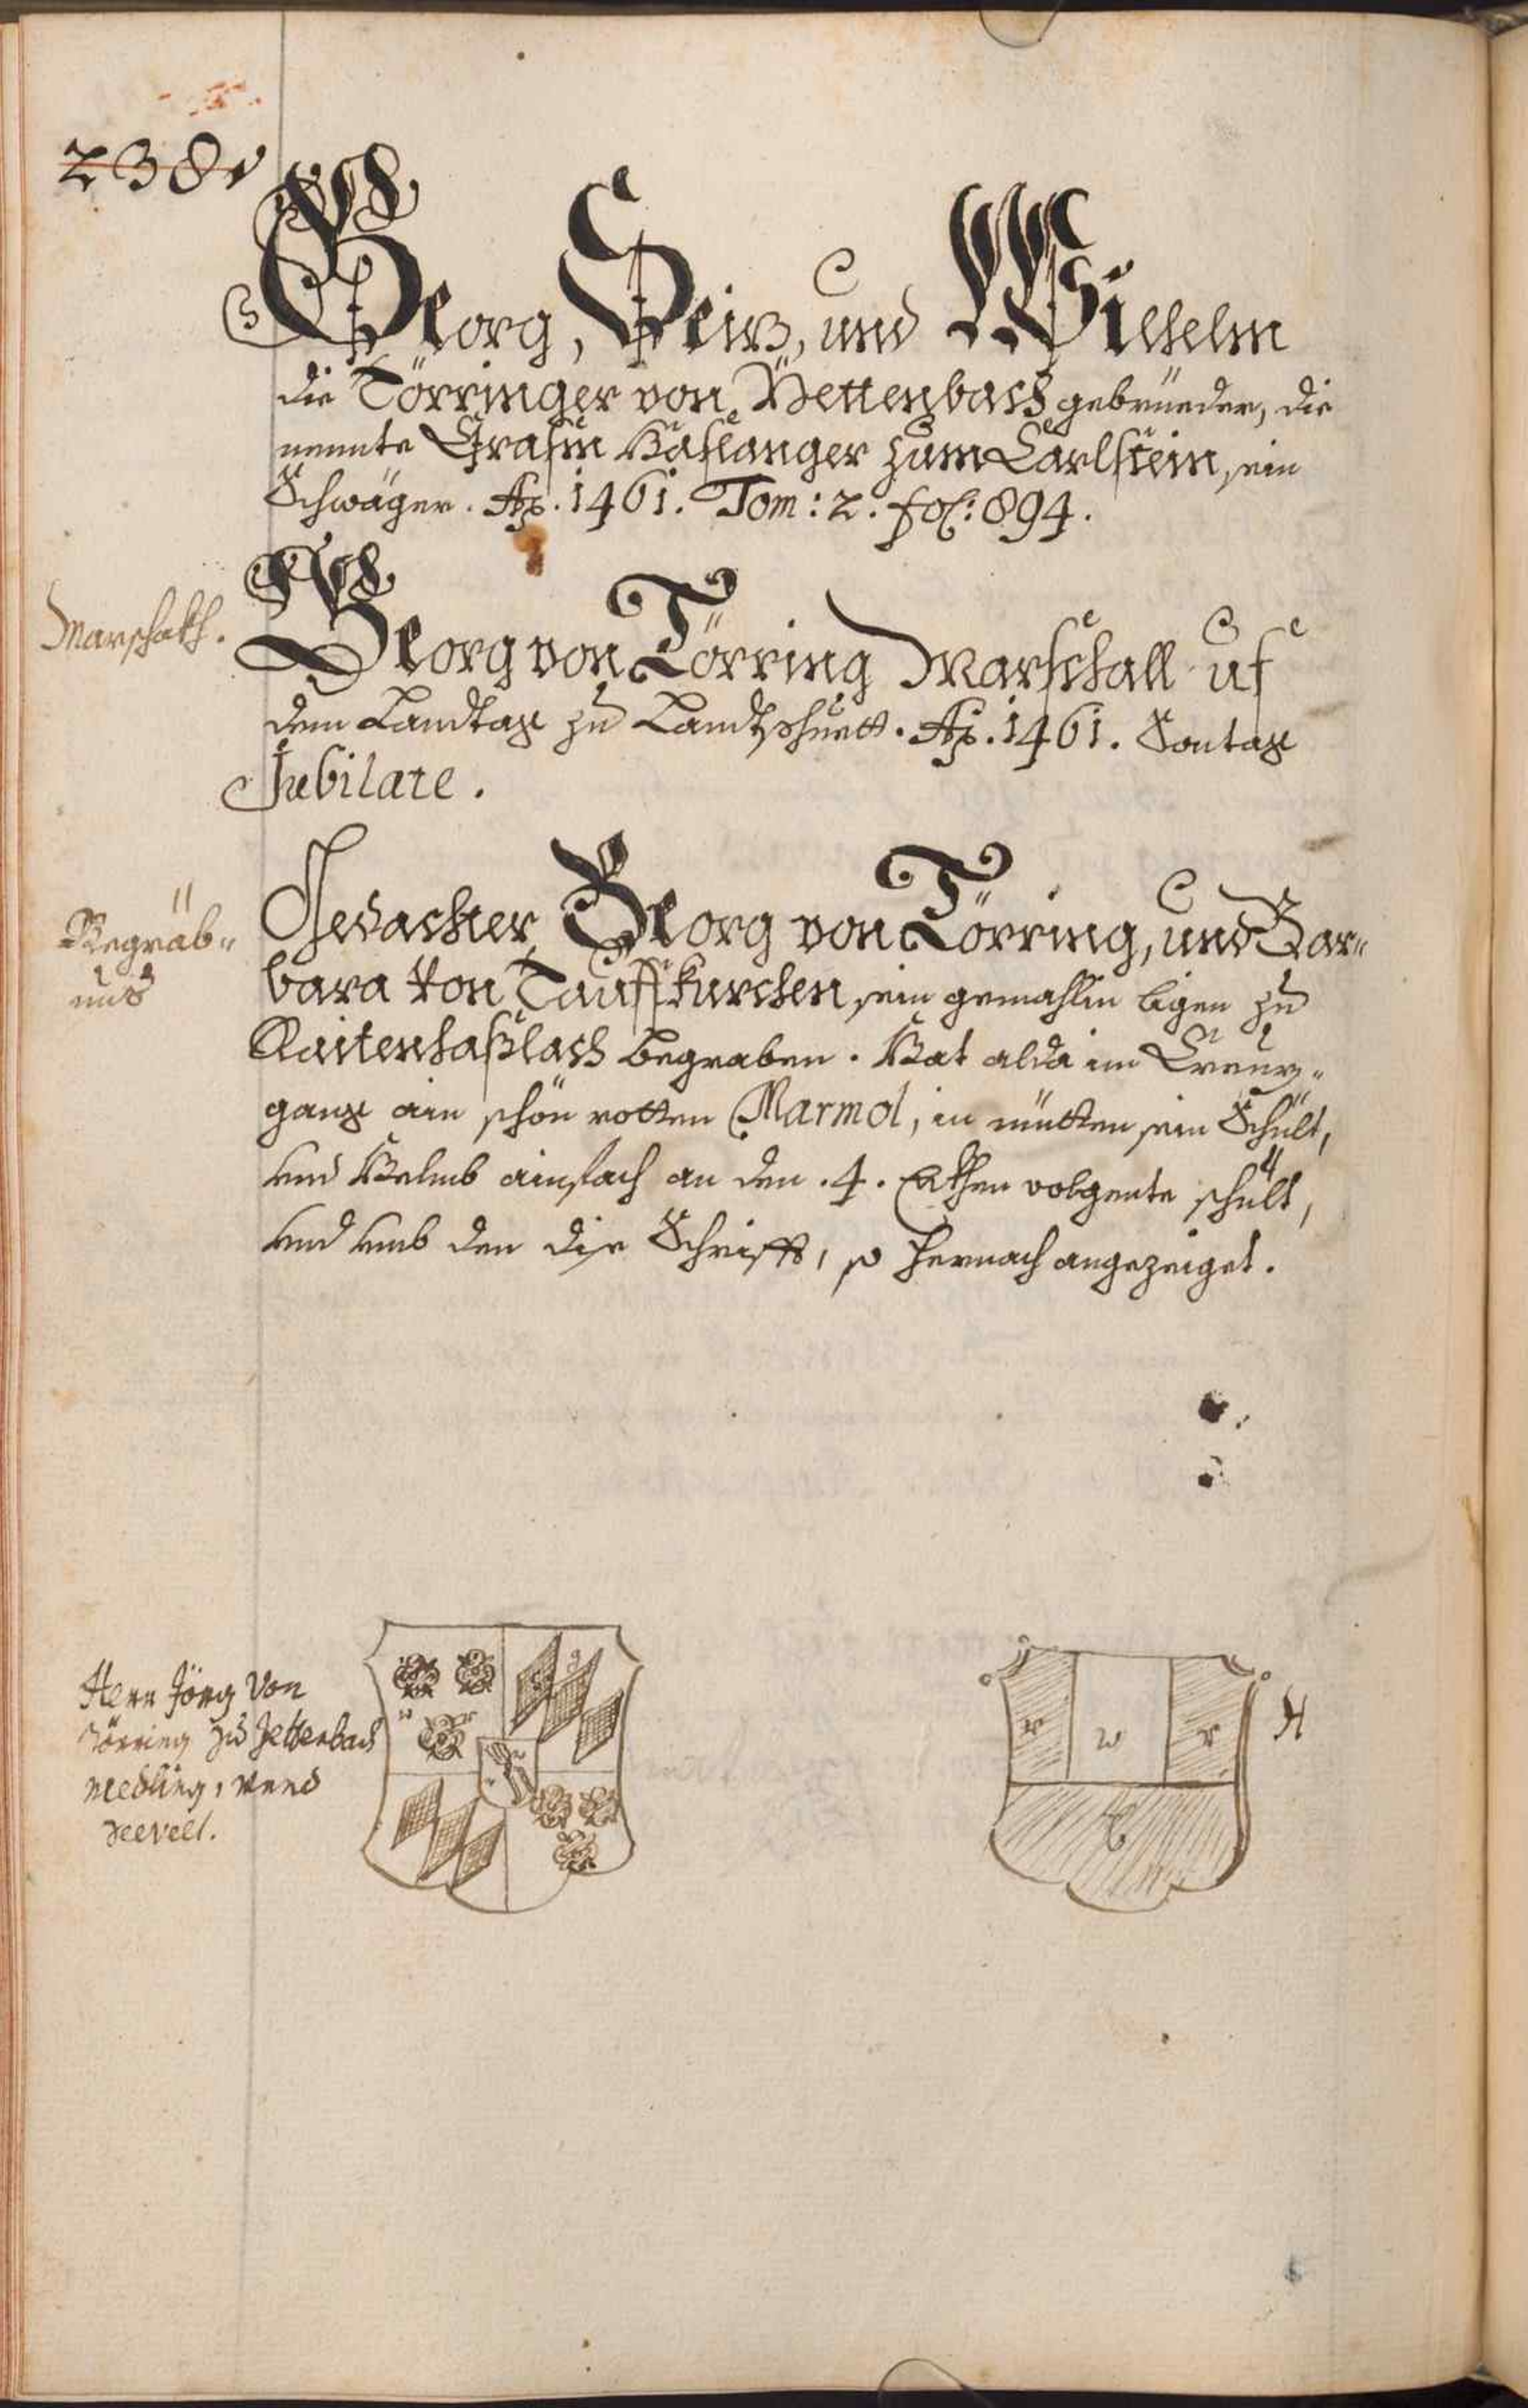 238v
Georg, Seiz, und Wilhelm
die Törringer von Yettenbach gebrüeder, die
nennte Erasm Haslanger zum Carlstein, sein
Schwäger. Ao. 1461. Tom: 2. fol: 894.
Marschalh.
Georg von Törring Marschall uf
dem Landtag zu Landtshuett. Ao. 1461. Sontag
Jubilate.
Begräb-
nus
Gedachter Georg von Törring, und Bar-
bara von Tauffkurchen, sein gemahlin ligen zu
Raitenhaslach begraben. Hat alda im Creuz-
gang ain schön rotten Marmol, in mitten sein Schült,
und Helmb ainfach an den .4. Ekhen volgente schült,
und umb den die Schrifft, so hernach angezeiget.
Herr Jörg von
Törring zu Jettenbach
Medling, vnnd
Seevelt.
w
r
g
r
w
r
H